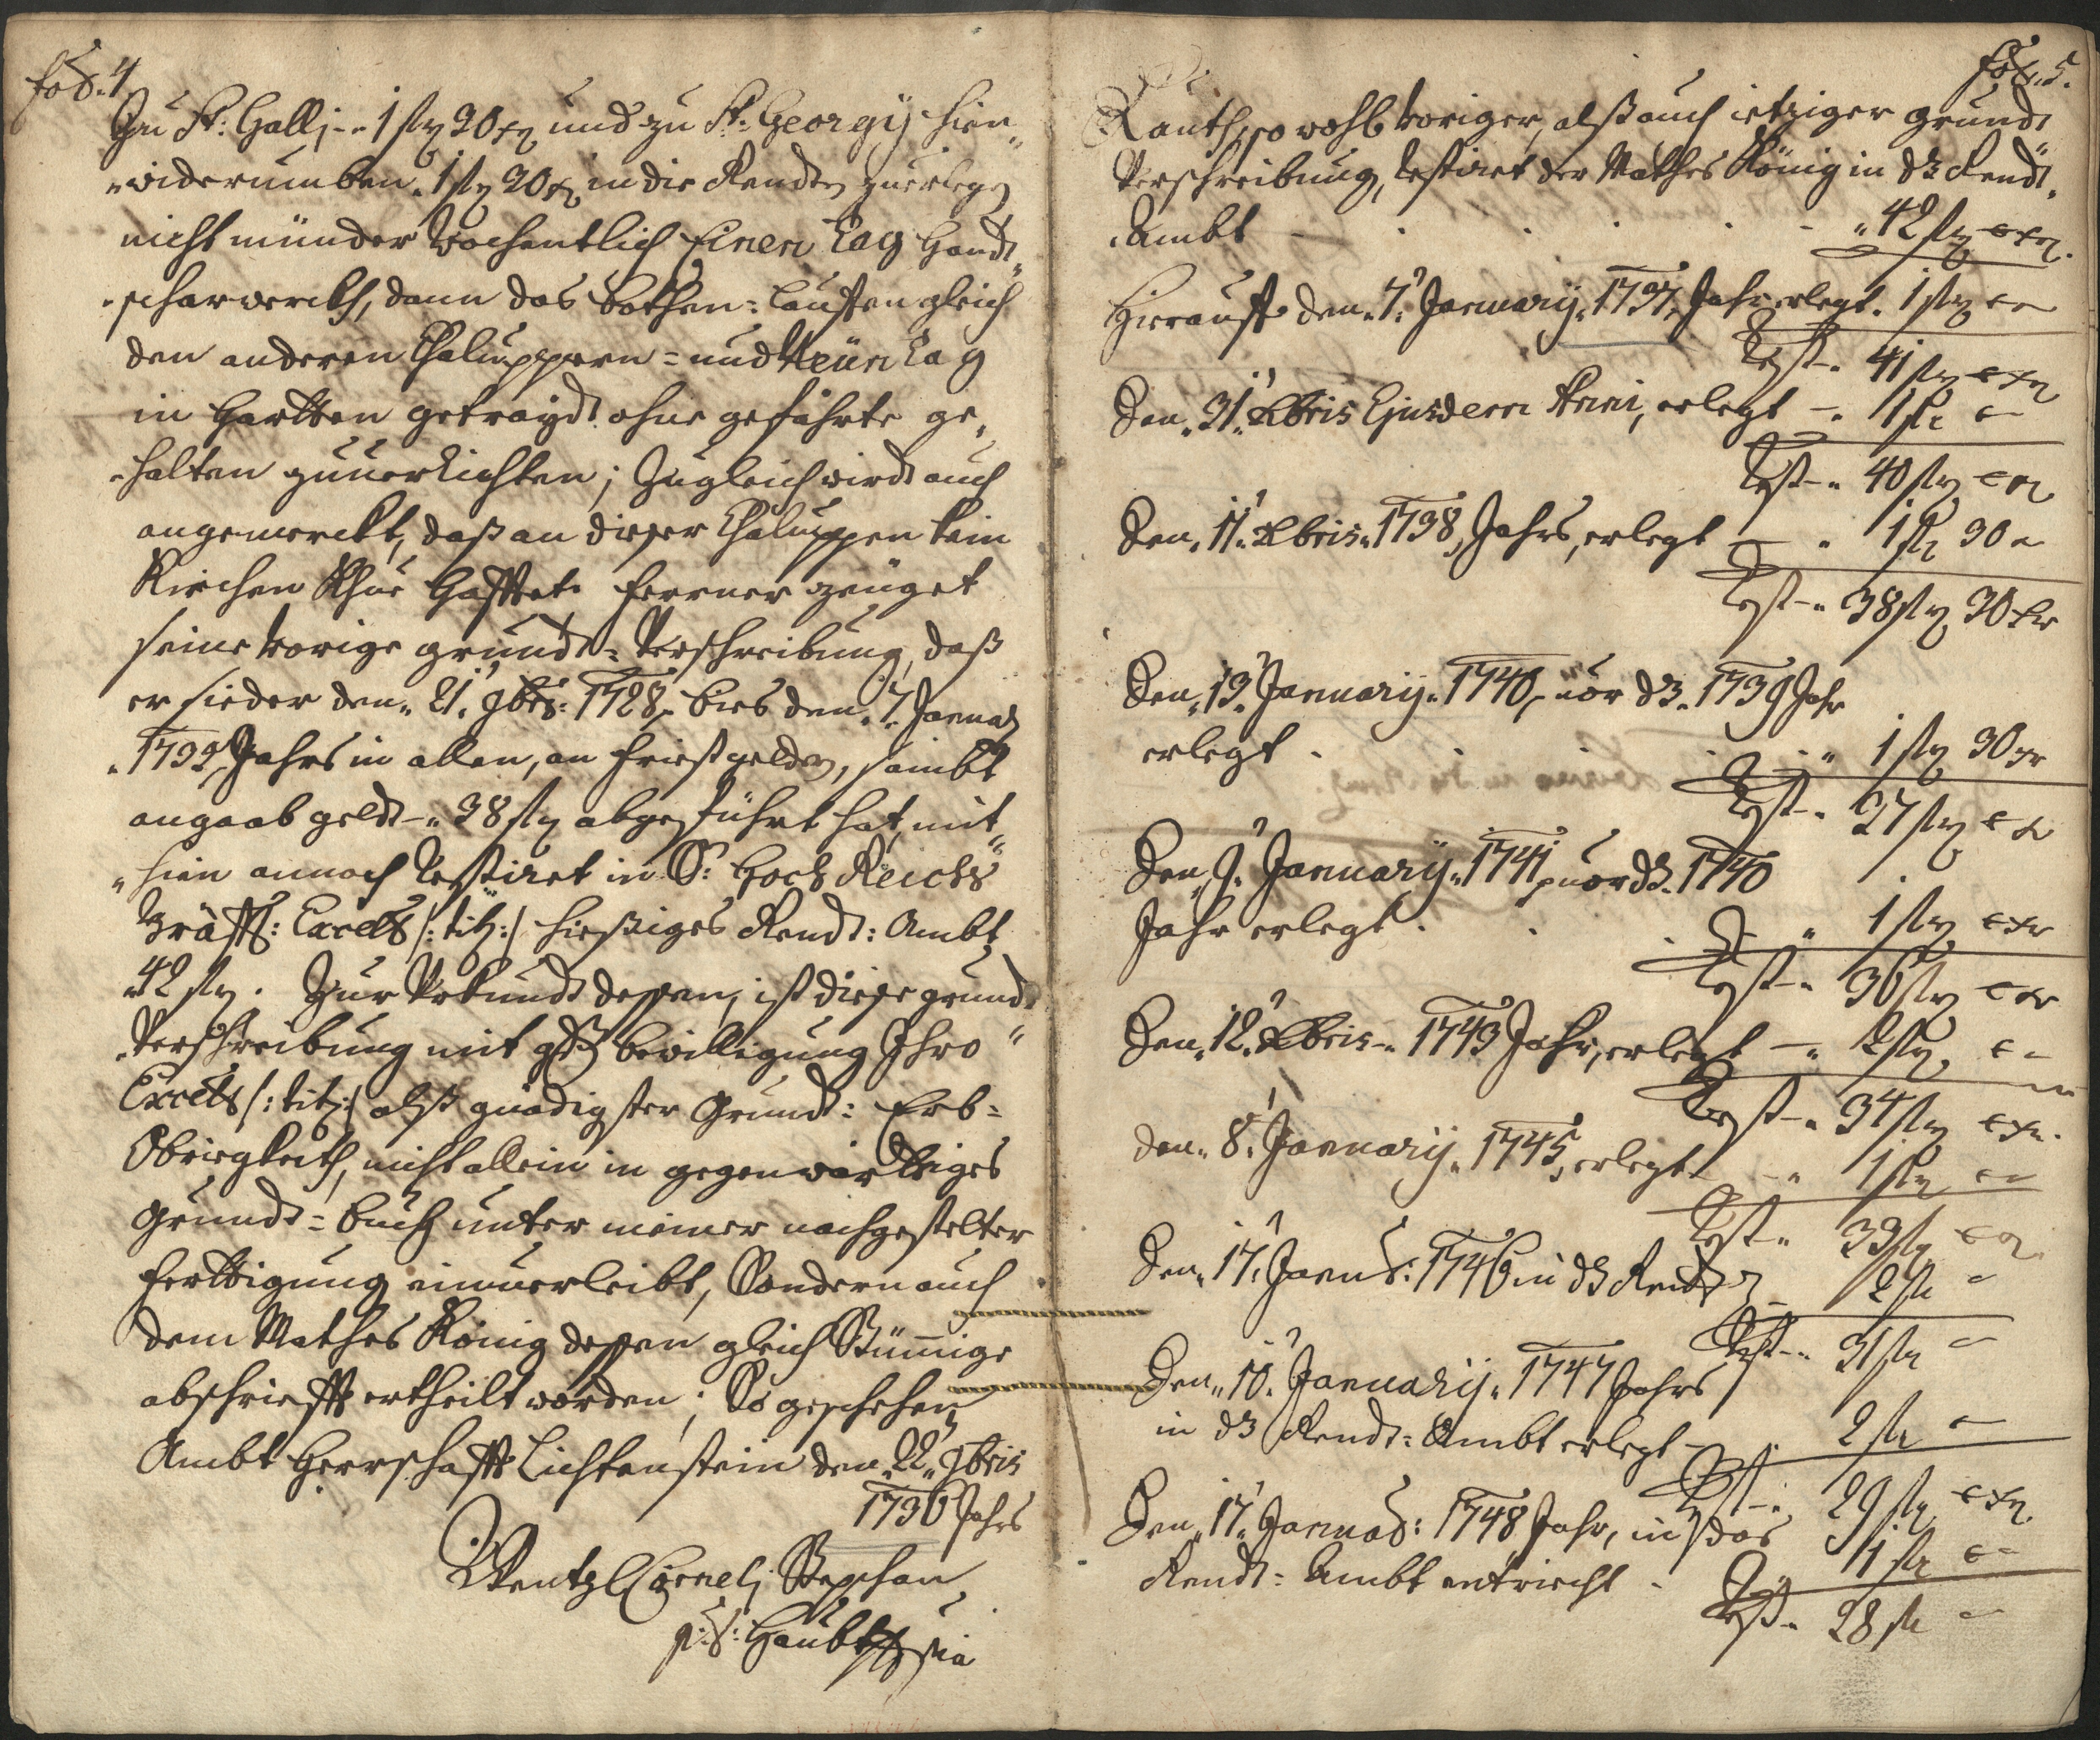 fol. 4
Zu St: Gallj -" 1 fl 30 xr und zu St: Georgij hien"
"widerumben " 1 fl 30 xr in die Rendten zuerlegen
nicht münder Wochentlich Einen Tag Handt"
"scharwerckh, dann das Bothen=lauffen gleich
den anderen Chaluppern = und Neün Tag
in Hartten getraydt ohne gefährte ge"
"halten zuuerrichten; Zugleich wirdt auch
angemerckt, daß an dieser Chaluppen kein
Kirchen Khue hafftet. Ferrner zeüget
seine vorige grundt=Verschreibung, daß
er sieder den " 21. 9bris: 1728 bies den " 7. Januar
" 1732 Jahrs in allen, an friestgeldern, sambt
angaab geldt -" 38 fl abgeführt hat, mit"
"hien annoch Restiret in Sr: Hoch Reichs
Gräffl: Excells /: titl: / hießiges Rendt: Ambt
" 42 fl. Zur Urkundt dessen, ist diese grundt
Verschreibung mit gdl bewilligung Ihro"
Excells /: titl: / alß gnädigster Grundt: Erb=
Obrigkeith, nicht allein in gegenwärttiges
Grundt=buch unter meiner nachgestelter
Ferttigung einuerleibt, Sondern auch
dem Mathes König dessen gleich Stümige
abschriefft ertheilt worden; So geschehen
Ambt Herrschafft Lichtenstein den " 22" 9bris
1736 Jahrs
Wentzl Cornelj Stephan
p: t: Haubtm mpia
fol. 5.
Lauth, so wohl voriger, alß auch ietziger grundt"
Verschreibung, Restiret der Mathes König in dz Rendt"
"Ambt - . . . - " 42 fl - xr.
Hierauff den " 7. January " 1737 Jahr erlegt " 1 fl -
Rest -" 41 fl - xr
Den " 31" Xbris Ejusdem Anni, erlegt -" 1 fl -
Rest -" 40 fl - xr
Den " 11" Xbris " 1738, Jahrs, erlegt - " 1 fl 30 -
Rest -" 38 fl 30 xr
Den " 13. January " 1740, uor dz " 1739 Jahr
erlegt . . . . " 1 fl 30 xr
Rest -" 37 fl - xr
Den " 9. January " 1741 uor dz " 1740
Jahr erlegt . . . " 1 fl - xr
Rest -" 36 fl - xr
Den " 12. Xbris -" 1743 Jahr, erlegt -" 2 fl -
Rest -" 34 fl - xr.
den " 8. January " 1745, erlegt -" 1 fl -
Rest " 33 fl - xr
Den " 17. Januar: 1746 in dz Rendt - 2 fl -
Rest -" 31 fl -
Den " 10. January " 1747 Jahrs
in dz Rendt: Ambt erlegt - . 2 fl -
Rest -" 29 fl - xr
Den " 17. Januar: 1748 Jahr, in das
Rendt: Ambt entricht - " 1 fl -
Rest " 28 fl -